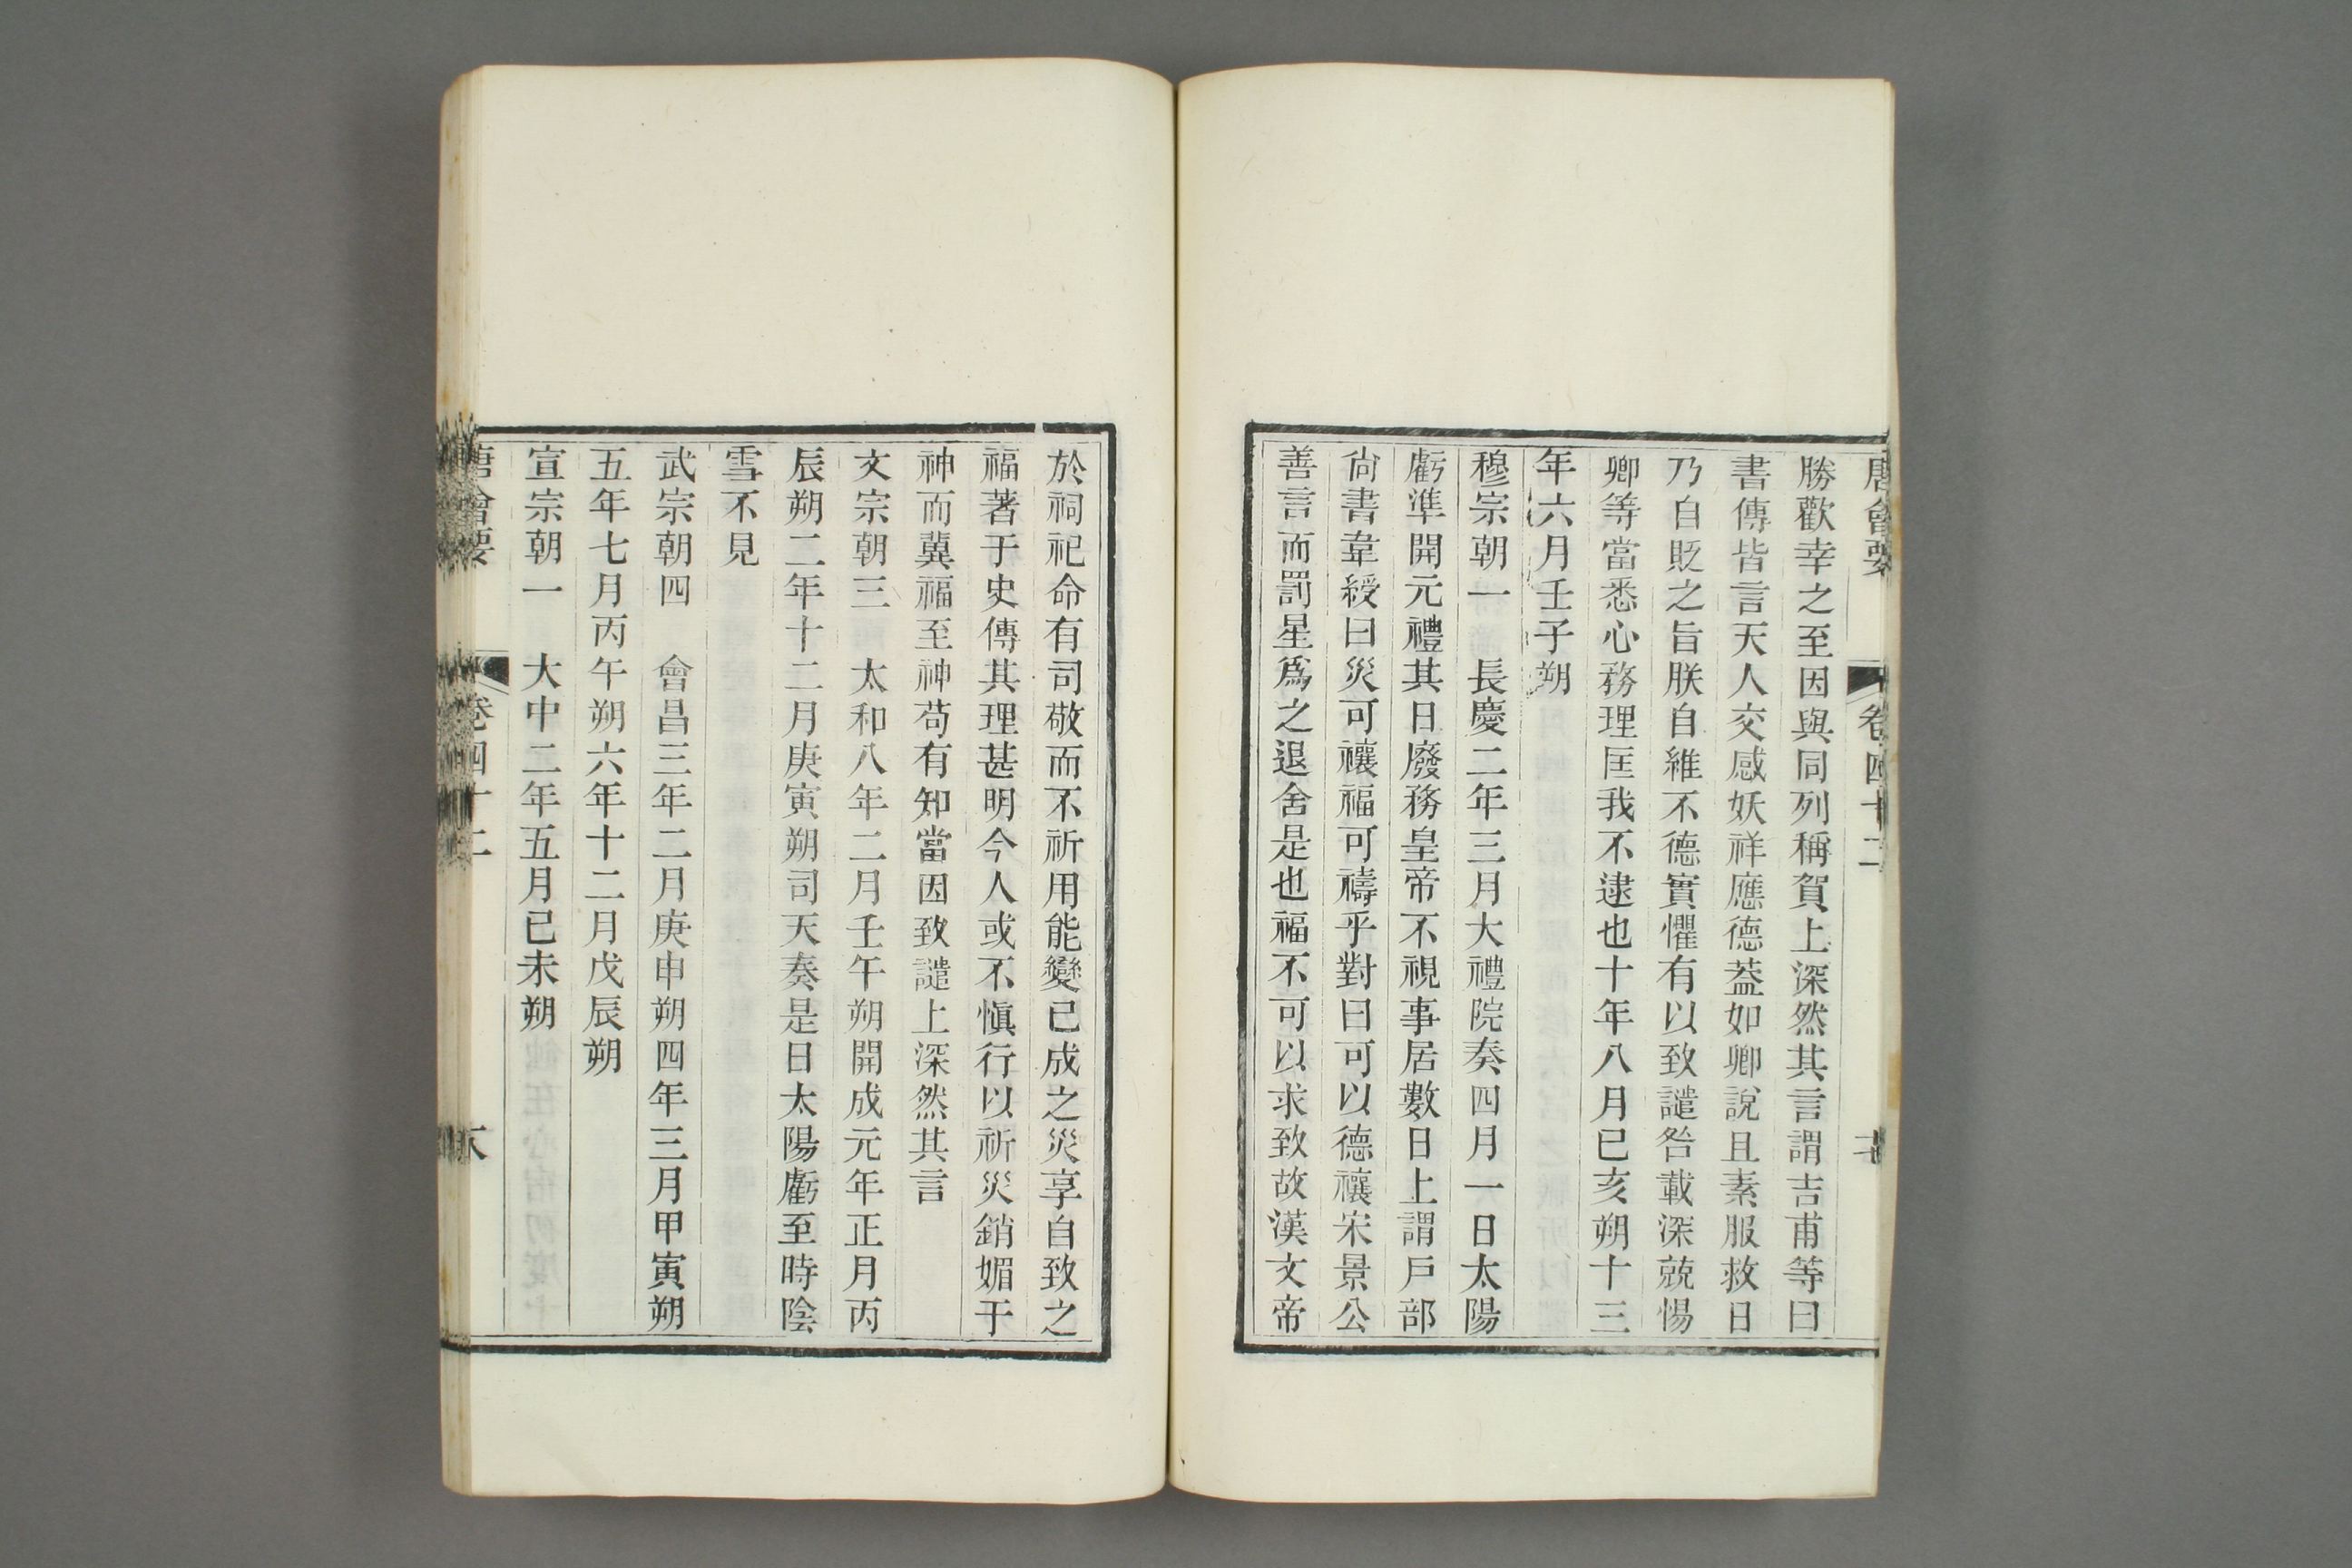 唐會要 卷四十二 十七
勝歡幸之至因與同列稱賀上深然其言謂吉甫等曰
書傳皆言天人交感妖祥應德葢如卿說且素服救日
乃自貶之旨朕自維不德實懼有以致譴咎載深兢惕
卿等當悉心務理匡我不逮也十年八月已亥朔十三
年六月壬子朔
穆宗朝一 長慶二年三月大禮院奏四月一日太陽
虧準開元禮其日廢務皇帝不視事居數日上謂戸部
尙書韋綬曰災可禳福可禱乎對曰可以德禳宋景公
善言而罰星爲之退舍是也福不可以求致故漢文帝
於祠祀命有司敬而不祈用能變已成之災享自致之
福著于史傳其理甚明今人或不愼行以祈災銷媚于
神而冀福至神苟有知當因致譴上深然其言
文宗朝三 太和八年二月壬午朔開成元年正月丙
辰朔二年十二月庚寅朔司天奏是日太陽虧至時陰
雪不見
武宗朝四 會昌三年二月庚申朔四年三月甲寅朔
五年七月丙午朔六年十二月戊辰朔
宣宗朝一 大中二年五月已未朔
唐會要 卷四十二